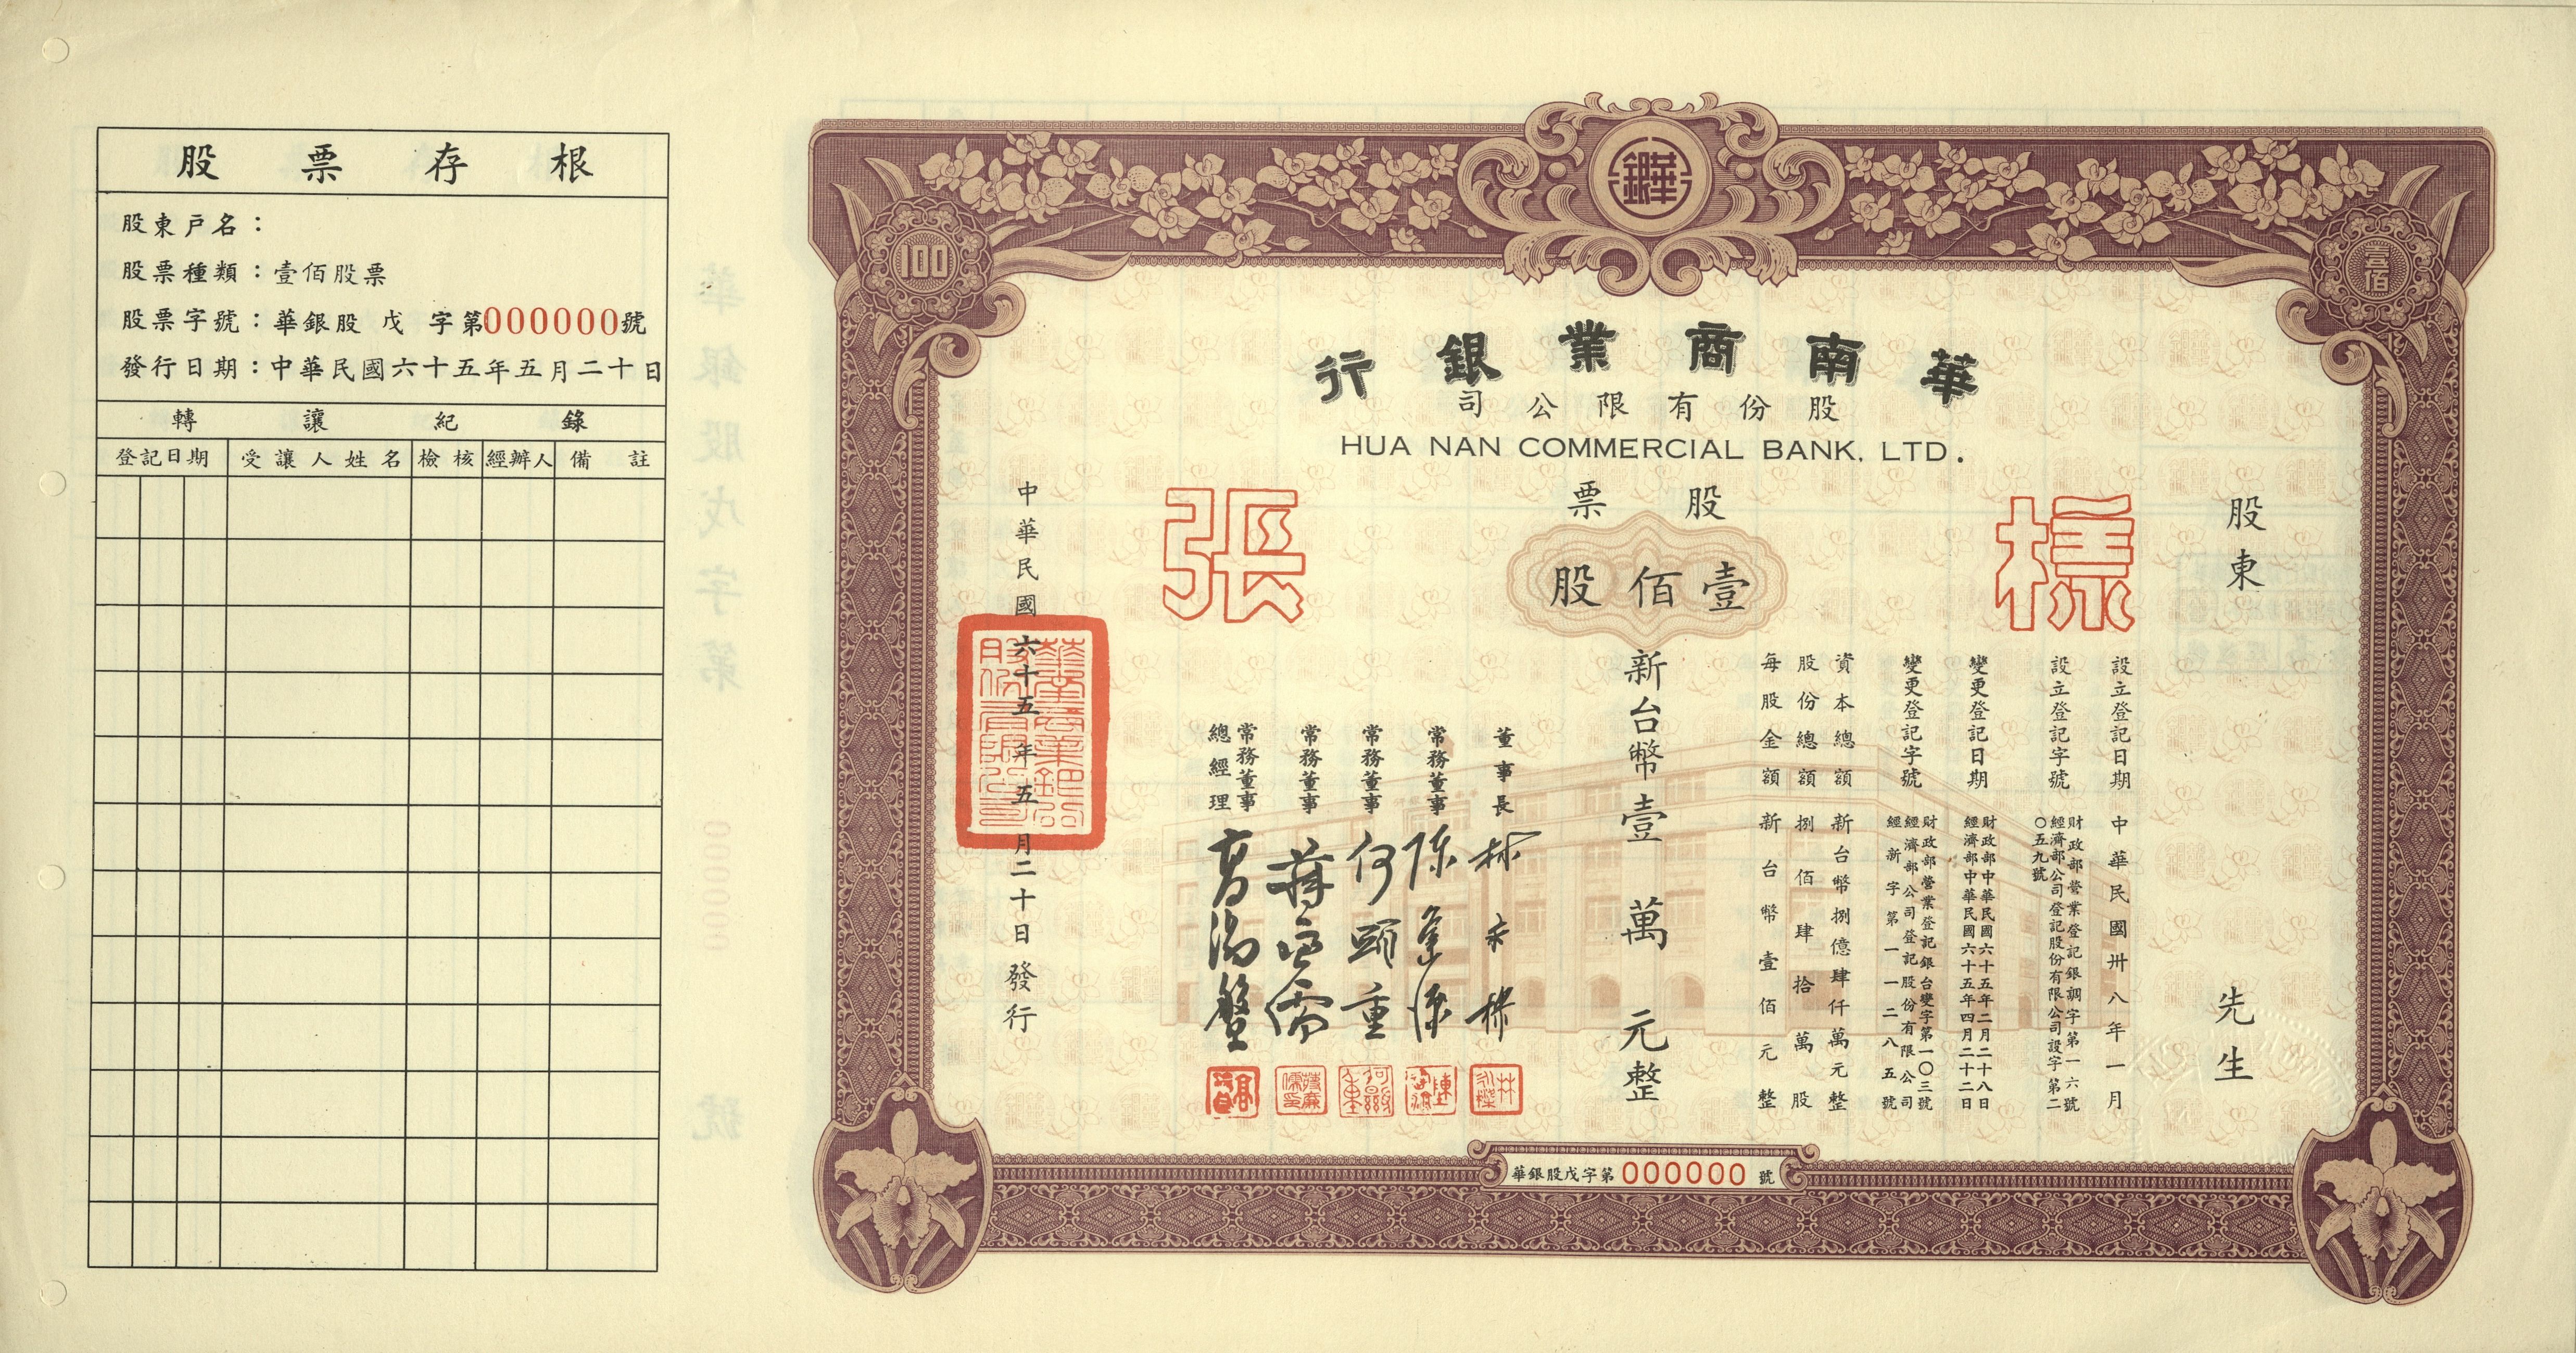 股票存根
股東戶名：
股票種類：壹佰股票
股票字號：華銀股 戊 字第000000號
發行日期：中華民國六十五年五月二十日
轉讓紀錄
登記日期 受讓人姓名 檢核 經辦人 備註
100
壹佰
華南商業銀行
股份有限公司
HUA NAN COMMERCIAL BANK, LTD.
股票
標張
壹佰股
股東 先生
設立登記日期 中華民國卅八年一月
設立登記字號 財政部營業登記銀調字第一六號
經濟部公司登記股份有限公司設字第二
〇五九號
變更登記日期 財政部中華民國六十五年二月二十八日
經濟部中華民國六十五年四月二十二日
變更登記字號 財政部營業登記銀台變字第一〇三號
經濟部公司登記股份有限公司
經新字第一一二八五號
資本總額 新台幣捌億肆仟萬元整
股份總額 捌佰肆拾萬股
每股金額 新台幣壹佰元整
新台幣壹萬元整
董事長 林永樑
常務董事
常務董事
常務董事
常務董事
總經理
中華民國六十五年五月二十日發行
華南商業銀行股份有限公司
華銀股戊字第000000號